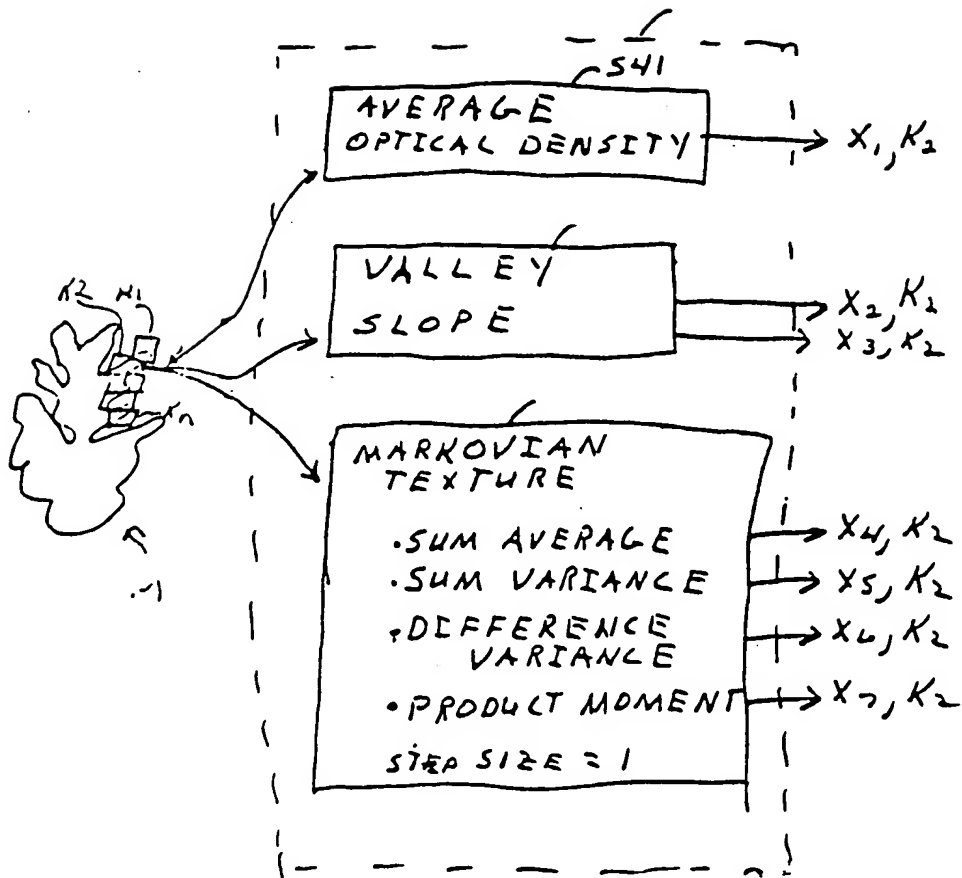 S41
AVERAGE
OPTICAL DENSITY
X1, K2
VALLEY
SLOPE
X2, K2
X3, K2
K2 K1
MARKOVIAN
TEXTURE
•SUM AVERAGE
•SUM VARIANCE
•DIFFERENCE
VARIANCE
•PRODUCT MOMENT
STEP SIZE = 1
X4, K2
X5, K2
X6, K2
X7, K2